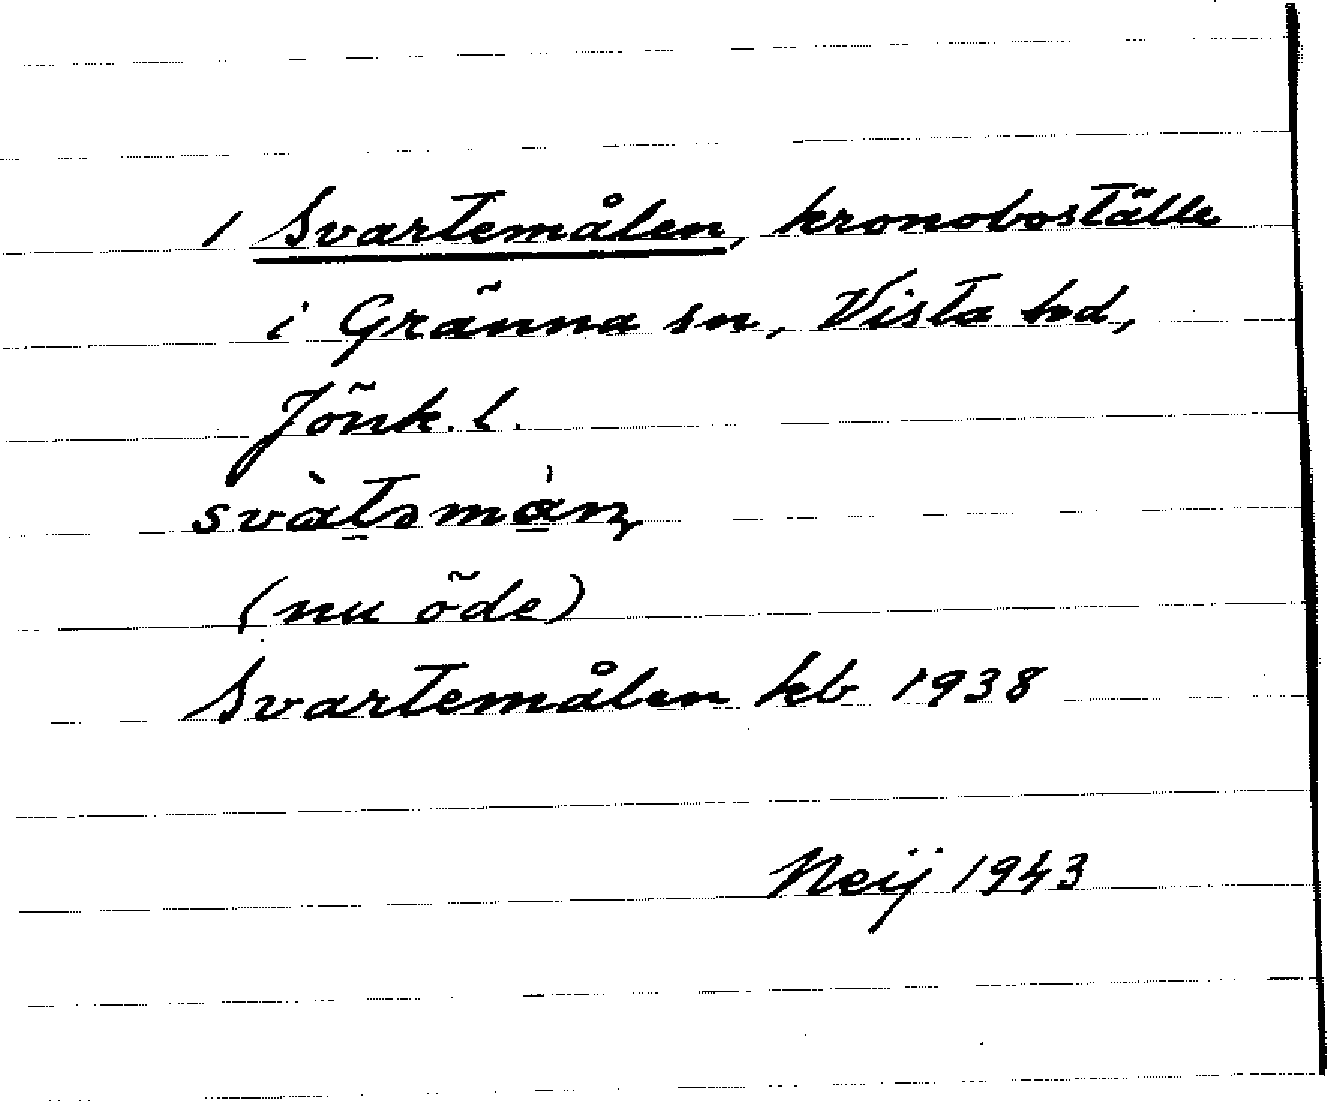 1 Svartemålen, kronoboställe
i Gränna sn, Vista hd,
Jönk. l.
(nu öde)
Svartemålen kb 1938
Neij 1943